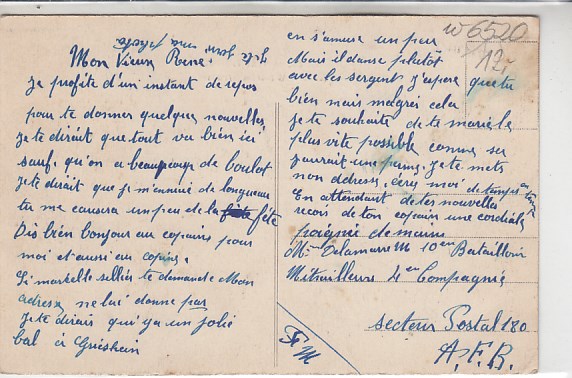 Mon Vieux René
Je profite d'un instant de repos
pour te donner quelques nouvelles
Je te dirait que tout va bien ici
sauf qu'on a beaucoup de boulot
Je te dirait que je m'ennuie de longueur
tu me causera un peu de la fête
Dis bien bonjour au copains pour
moi et aussi au copine.
Si te demande Mon
adresse ne lui donne pas
Je te dirais qui y a un jolie
bal à
en s'amuse un peu
Mais il danse plutôt
avec les sergent J'espere que tu
bien mais malgré cela
Je te souhaite de te
plus vite possible comme sa
Je te mets
mon adresse, écris moi de temps en temps
En attendant de tes nouvelles
recois de ton copain une cordiale
poignée de mains
Mr Delamarre M 10em Bataillon
Mitrailleurs 4em Compagnie
secteur Postal 180
A.F.B.
F M
W 6520
12,